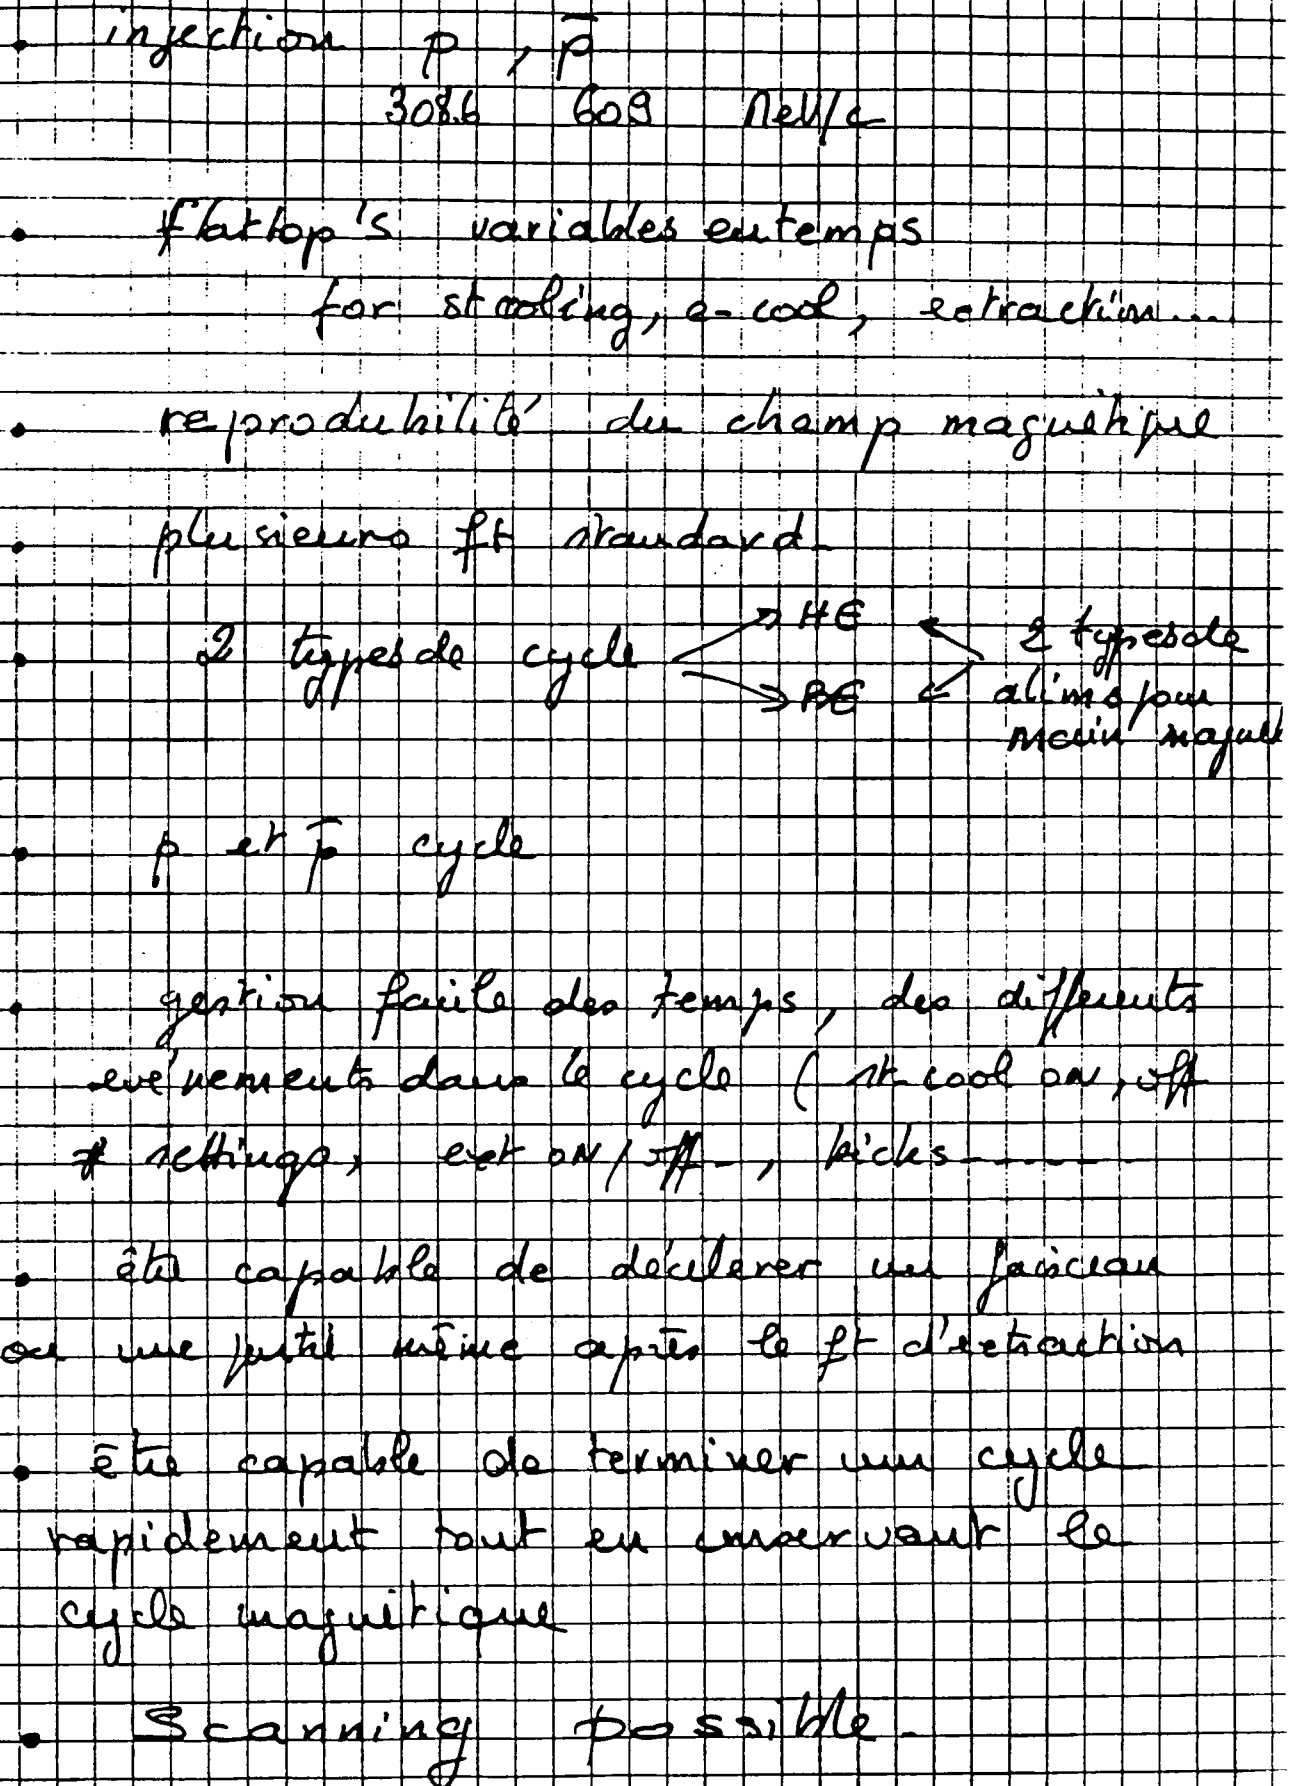 • injection p , p̄
308.6 609 MeV/c
• flattop's variables en temps
for st cooling, e-cool, extraction....
• reprodubilité du champ magnétique
• plusieurs ft standard
• 2 types de cycle → HE ← 2 types de
→ BE ← alims pour
main magnet
• p et p̄ cycle
• gestion facile des temps, des différents
evénements dans le cycle ( st cool on, off
≠ settings, ext on/off , kicks
• être capable de décélerer un faisceau
ou une partie même après le ft d'extraction
• être capable de terminer un cycle
rapidement tout en conservant le
cycle magnétique
• Scanning possible.